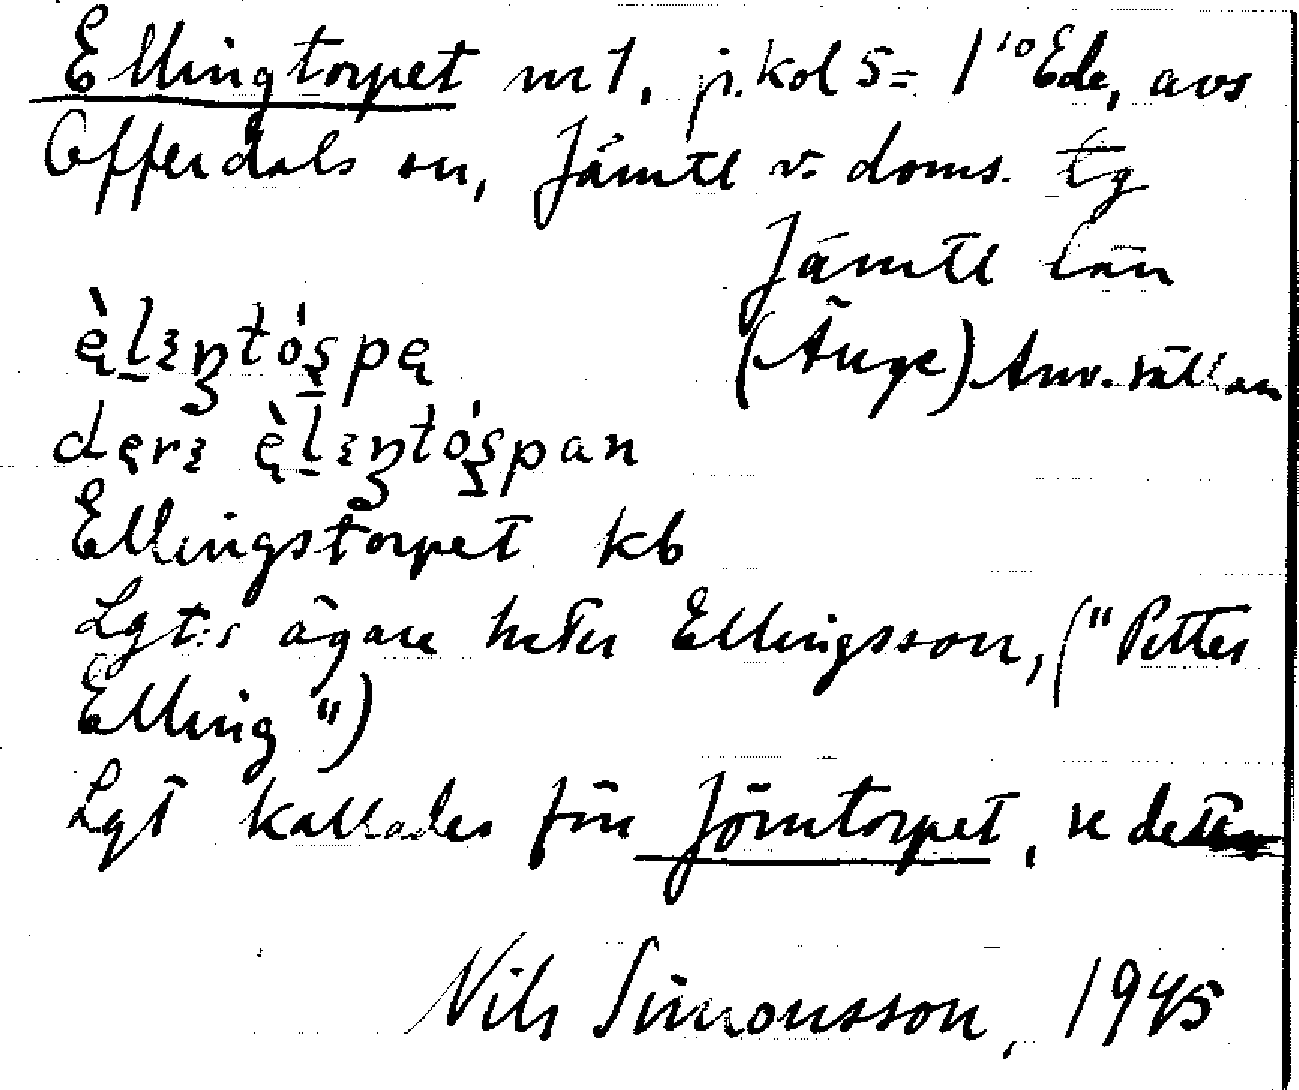 Ellingtorpet nr 1, j.kol 5 = 1¹⁰ Ede, avs
Offerdals sn, Jämtl v. doms. tg
Jämtl län
(Änge) Anv. sällan
Ellingstorpet kb
Lgt:s ägare heter Ellingsson, ("Petter
Elling")
Lgt kallades förr Jörntorpet, se detta
Nils Simonsson, 1945